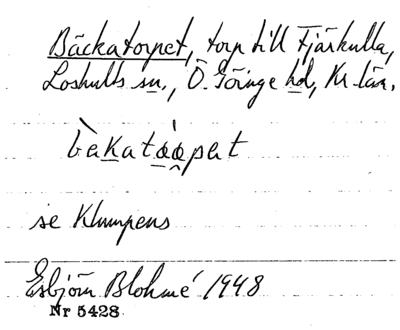 Bäckatorpet, torp till Tjärkulla,
Loshults sn., Ö. Göinge hd, Kr. län.
se Klumpens
Esbjörn Blohmé 1948
Nr 5428